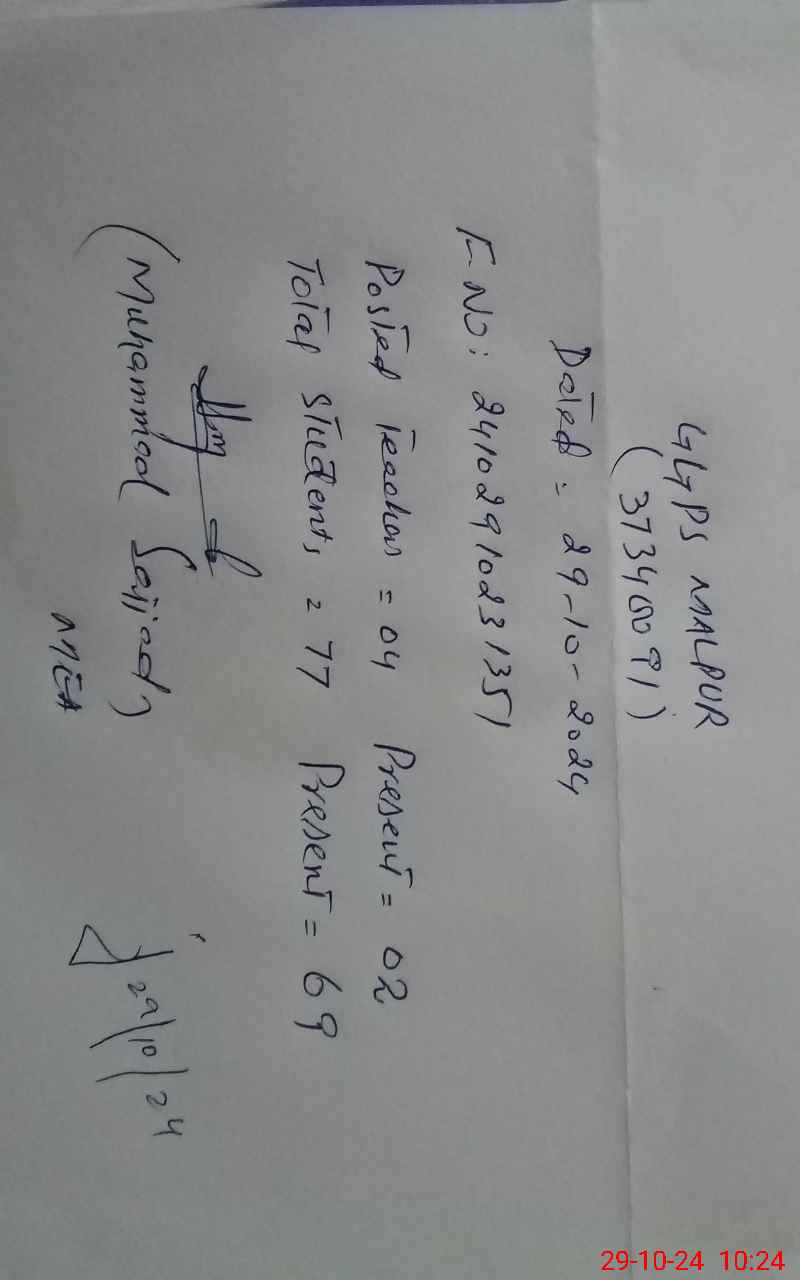 GGPS MALPUR
(37340091)
Dated: 29-10-2024
F.NO: 24102910231351
Posted Teachers = 04 Present = 02
Total students = 77 Present = 69
(Muhammad Sajjad)
MEA
29/10/24
29-10-24 10:24